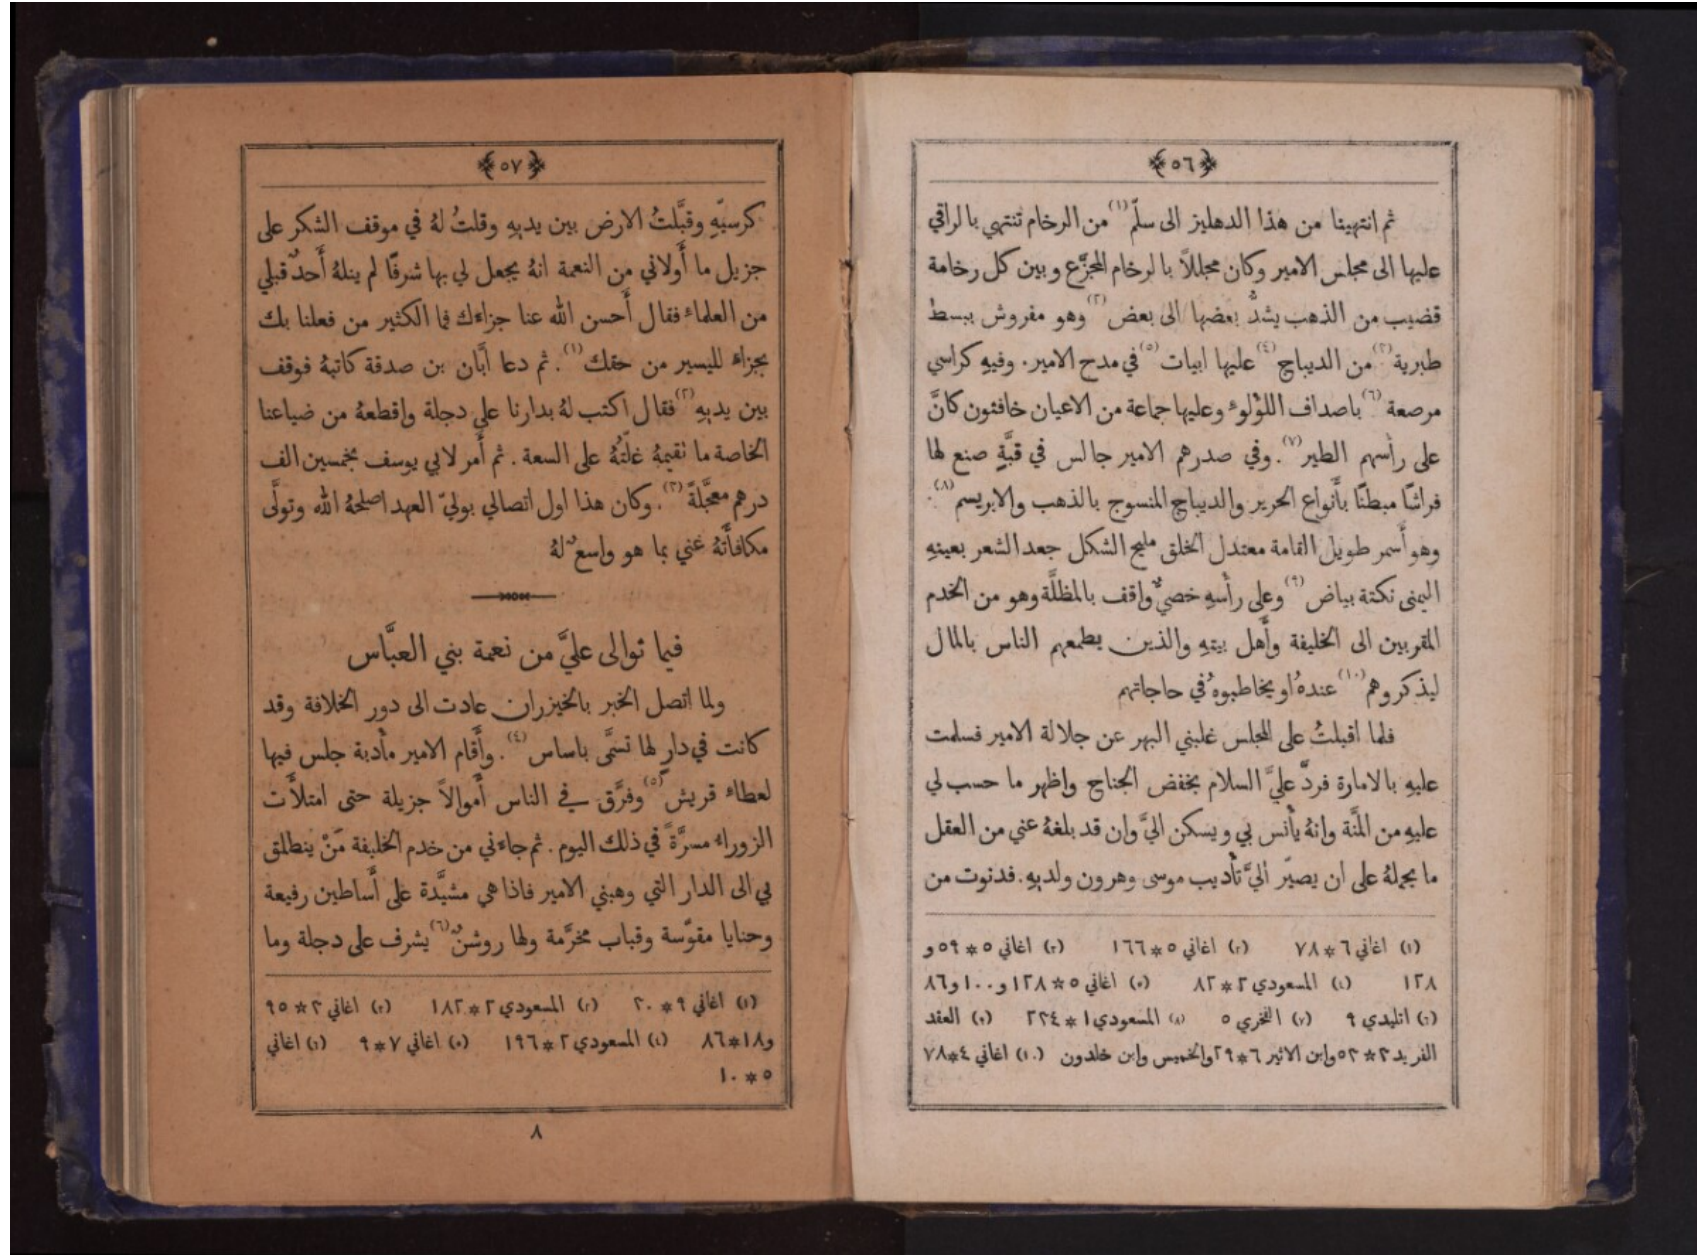 ﴿٥٦﴾
ثم انتهينا من هذا الدهليز الى سلّم (١) من الرخام تنتهي بالراقي
عليها الى مجلس الامير وكان مجللاً بالرخام المجزَّع وبين كل رخامة
قضيب من الذهب يشدُّ بعضها الى بعض (٢) وهو مفروش ببسط
طبرية (٣) من الديباج (٤) عليها ابيات (٥) في مدح الامير. وفيهِ كراسي
مرصعة (٦) باصداف اللؤلوء وعليها جماعة من الاعيان خافئون كانَّ
على رأسهم الطير (٧). وفي صدرهم الامير جالس في قبَّةٍ صنع لها
فراشًا مبطنًا بأَنواع الحرير والديباج المنسوج بالذهب والابريسم (٨).
وهو أَسمر طويل القامة معتدل الخلق مليح الشكل جعد الشعر بعينهِ
اليمنى نكتة بياض (٩) وعلى رأسهِ خصيٌّ واقف بالمظلَّة وهو من الخدم
المقربين الى الخليفة وأَهل بيتهِ والذين يطمعهم الناس بالمال
ليذكروهم (١٠) عندهُ او يخاطبوهُ في حاجاتهم
فلما اقبلتُ على المجلس غلبني البهر عن جلالة الامير فسلمت
عليهِ بالامارة فردَّ عليَّ السلام بخفض الجناح واظهر ما حسب لي
عليهِ من المنَّة وانهُ يأنس بي ويسكن اليَّ وان قد بلغهُ عني من العقل
ما يحملهُ على ان يصيّر اليَّ تأديب موسى وهرون ولديهِ. فدنوت من
(١) اغاني ٦ * ٧٨ (٢) اغاني ٥ * ١٦٦ (٣) اغاني ٥ * ٥٩ و
١٢٨ (٤) المسعودي ٢ * ٨٢ (٥) اغاني ٥ * ١٢٨ و١٠٠ و٨٦
(٦) اتليدي ٩ (٧) الفخري ٥ (٨) المسعودي ١ * ٢٢٤ (٩) العقد
الفريد ٣ * ٥٢ وابن الاثير ٦ * ٢٩ والخميس وابن خلدون (١٠) اغاني ٤ * ٧٨
﴿٥٧﴾
كرسيّهِ وقبَّلتُ الارض بين يديهِ وقلتُ لهُ في موقف الشكر على
جزيل ما أَولاني من النعمة انهُ يجعل لي بها شرفًا لم ينلهُ أَحدٌ قبلي
من العلماء فقال أَحسن الله عنا جزاءك فما الكثير من فعلنا بك
بجزاء لليسير من حقك (١). ثم دعا أَبان بن صدقة كاتبهُ فوقف
بين يديهِ (٢) فقال اكتب لهُ بدارنا على دجلة واقطعهُ من ضياعنا
الخاصة ما نقيمهُ غلَّتهُ على السعة. ثم أَمر لابي يوسف بخمسين الف
درهم معجَّلةً (٣). وكان هذا اول اتصالي بوليّ العهد اصلحهُ الله وتولَّى
مكافأَتهُ عني بما هو واسعٌ لهُ
فيما توالى عليَّ من نعمة بني العبَّاس
ولما اتصل الخبر بالخيزران عادت الى دور الخلافة وقد
كانت في دارٍ لها تسمَّى باساس (٤). وأَقام الامير مأدبة جلس فيها
لعطاء قريش (٥) وفرَّق في الناس أَموالاً جزيلة حتى امتلأَت
الزوراء مسرَّةً في ذلك اليوم. ثم جاءني من خدم الخليفة مَنْ ينطلق
بي الى الدار التي وهبني الامير فاذا هي مشيَّدة على أَساطين رفيعة
وحنايا مقوّسة وقباب مخرَّمة ولها روشنٌ (٦) يشرف على دجلة وما
(١) اغاني ٩ * ٢٠ (٢) المسعودي ٢ * ١٨٢ (٣) اغاني ٣ * ٩٥
و١٨ * ٨٦ (٤) المسعودي ٢ * ١٩٦ (٥) اغاني ٧ * ٩ (٦) اغاني
٥ * ١٠
٨